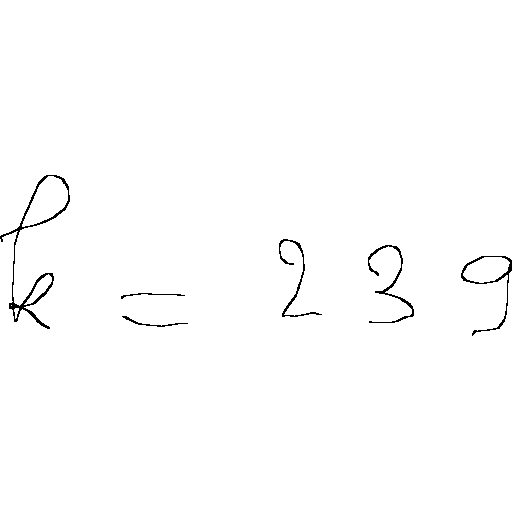 k = 239